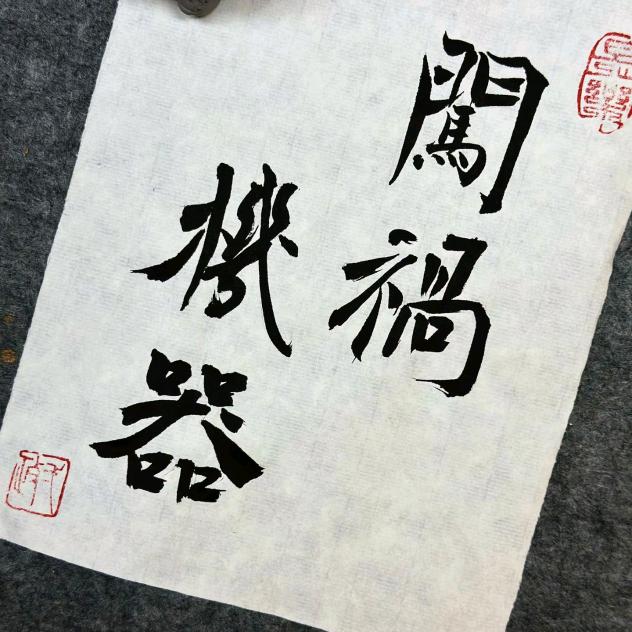 闖禍
機器